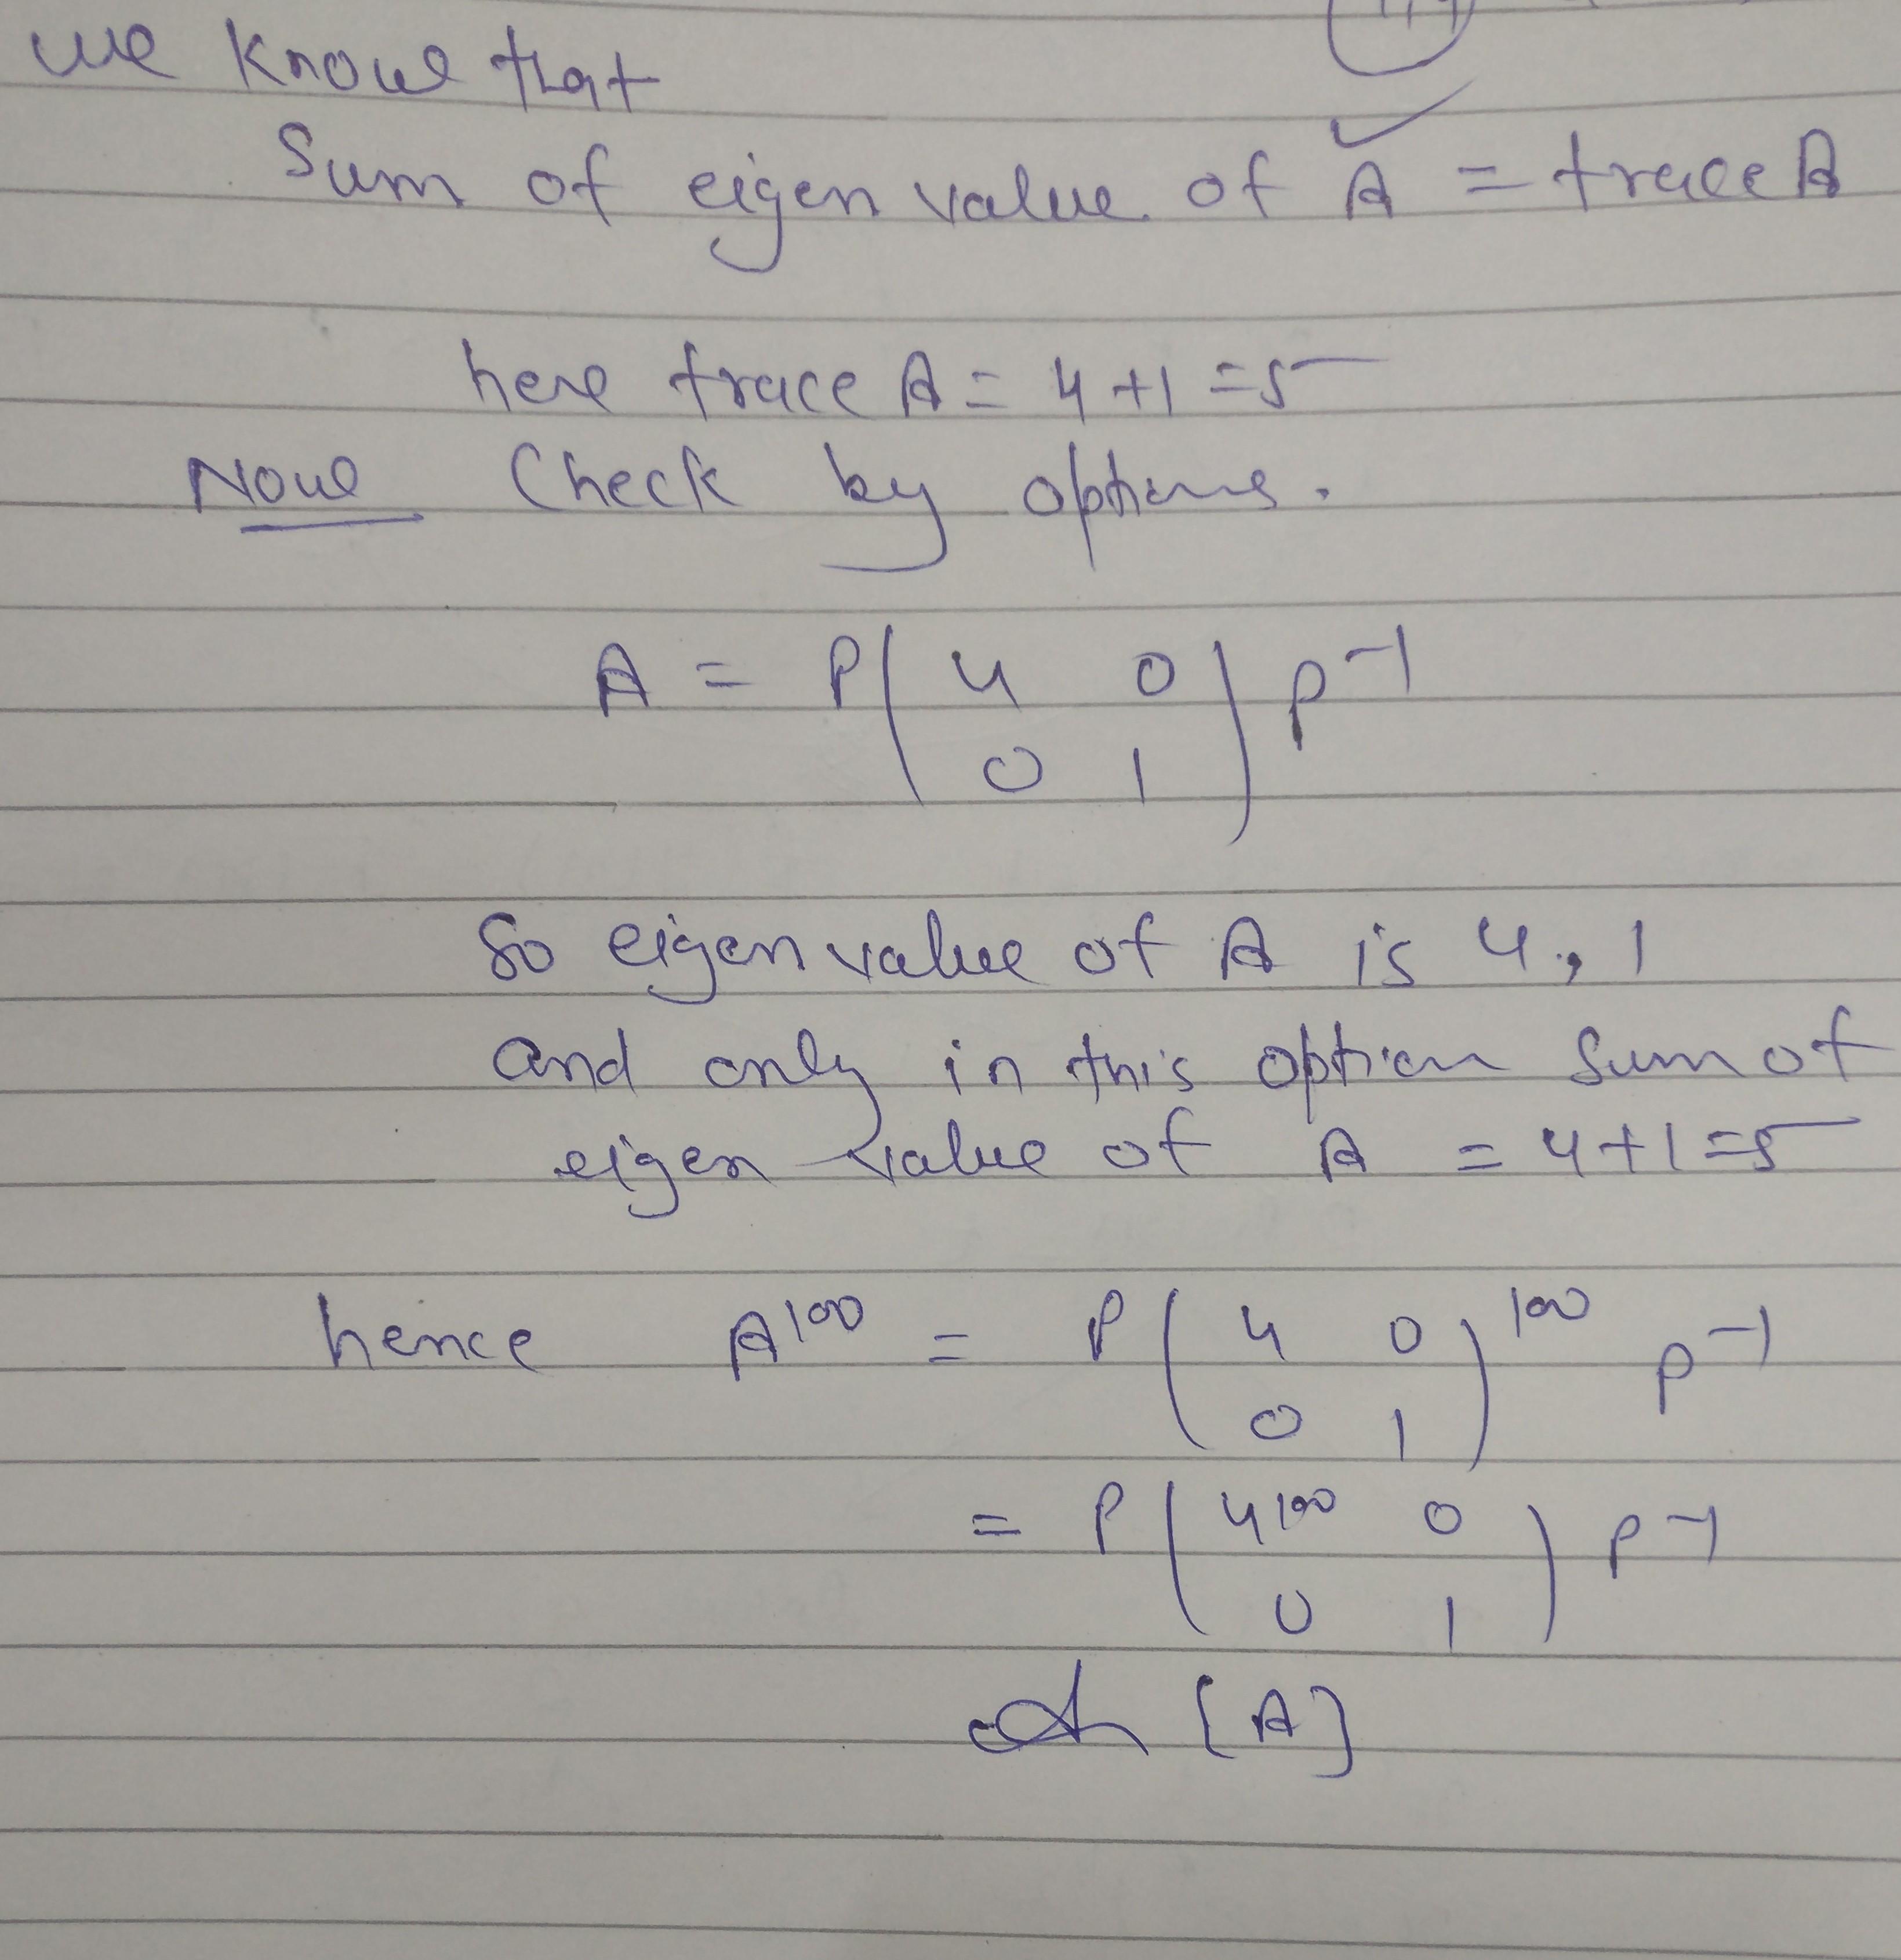 we know that
Sum of eigen value of A = trace A
here trace A = 4+1=5
Now Check by options.
A = P ( 4 0 ) P-1
0 1
So eigen value of A is 4, 1
and only in this option sum of
eigen value of A = 4+1=5
hence A100 = P ( 4 0 ) 100 P-1
0 1
= P ( 4100 0 ) P-1
0 1
[A]